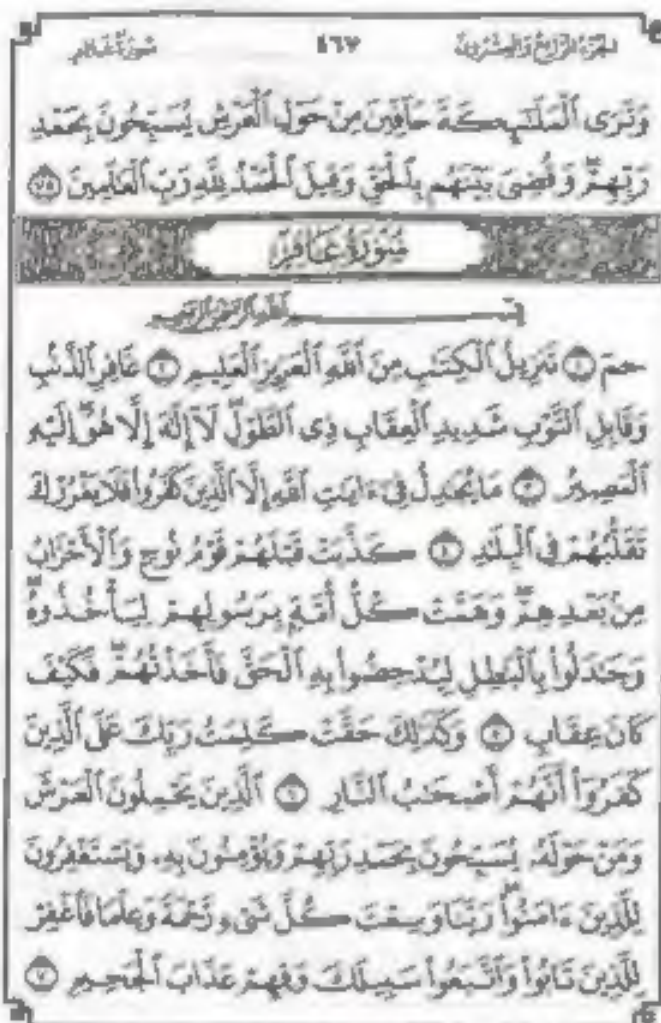 الجزء الرابع والعشرون ٤٦٧ سورة غافر
وَتَرَى ٱلْمَلَٰٓئِكَةَ حَآفِّينَ مِنْ حَوْلِ ٱلْعَرْشِ يُسَبِّحُونَ بِحَمْدِ
رَبِّهِمْۖ وَقُضِىَ بَيْنَهُم بِٱلْحَقِّ وَقِيلَ ٱلْحَمْدُ لِلَّهِ رَبِّ ٱلْعَٰلَمِينَ ٧٥
سُورَةُ غَافِرٍ
بِسْمِ ٱللَّهِ ٱلرَّحْمَٰنِ ٱلرَّحِيمِ
حمٓ ١ تَنزِيلُ ٱلْكِتَٰبِ مِنَ ٱللَّهِ ٱلْعَزِيزِ ٱلْعَلِيمِ ٢ غَافِرِ ٱلذَّنۢبِ
وَقَابِلِ ٱلتَّوْبِ شَدِيدِ ٱلْعِقَابِ ذِى ٱلطَّوْلِۖ لَآ إِلَٰهَ إِلَّا هُوَۖ إِلَيْهِ
ٱلْمَصِيرُ ٣ مَا يُجَٰدِلُ فِىٓ ءَايَٰتِ ٱللَّهِ إِلَّا ٱلَّذِينَ كَفَرُوا۟ فَلَا يَغْرُرْكَ
تَقَلُّبُهُمْ فِى ٱلْبِلَٰدِ ٤ كَذَّبَتْ قَبْلَهُمْ قَوْمُ نُوحٍ وَٱلْأَحْزَابُ
مِنۢ بَعْدِهِمْۖ وَهَمَّتْ كُلُّ أُمَّةٍۭ بِرَسُولِهِمْ لِيَأْخُذُوهُۖ
وَجَٰدَلُوا۟ بِٱلْبَٰطِلِ لِيُدْحِضُوا۟ بِهِ ٱلْحَقَّ فَأَخَذْتُهُمْۖ فَكَيْفَ
كَانَ عِقَابِ ٥ وَكَذَٰلِكَ حَقَّتْ كَلِمَتُ رَبِّكَ عَلَى ٱلَّذِينَ
كَفَرُوٓا۟ أَنَّهُمْ أَصْحَٰبُ ٱلنَّارِ ٦ ٱلَّذِينَ يَحْمِلُونَ ٱلْعَرْشَ
وَمَنْ حَوْلَهُۥ يُسَبِّحُونَ بِحَمْدِ رَبِّهِمْ وَيُؤْمِنُونَ بِهِۦ وَيَسْتَغْفِرُونَ
لِلَّذِينَ ءَامَنُوا۟ۖ رَبَّنَا وَسِعْتَ كُلَّ شَىْءٍ رَّحْمَةً وَعِلْمًا فَٱغْفِرْ
لِلَّذِينَ تَابُوا۟ وَٱتَّبَعُوا۟ سَبِيلَكَ وَقِهِمْ عَذَابَ ٱلْجَحِيمِ ٧